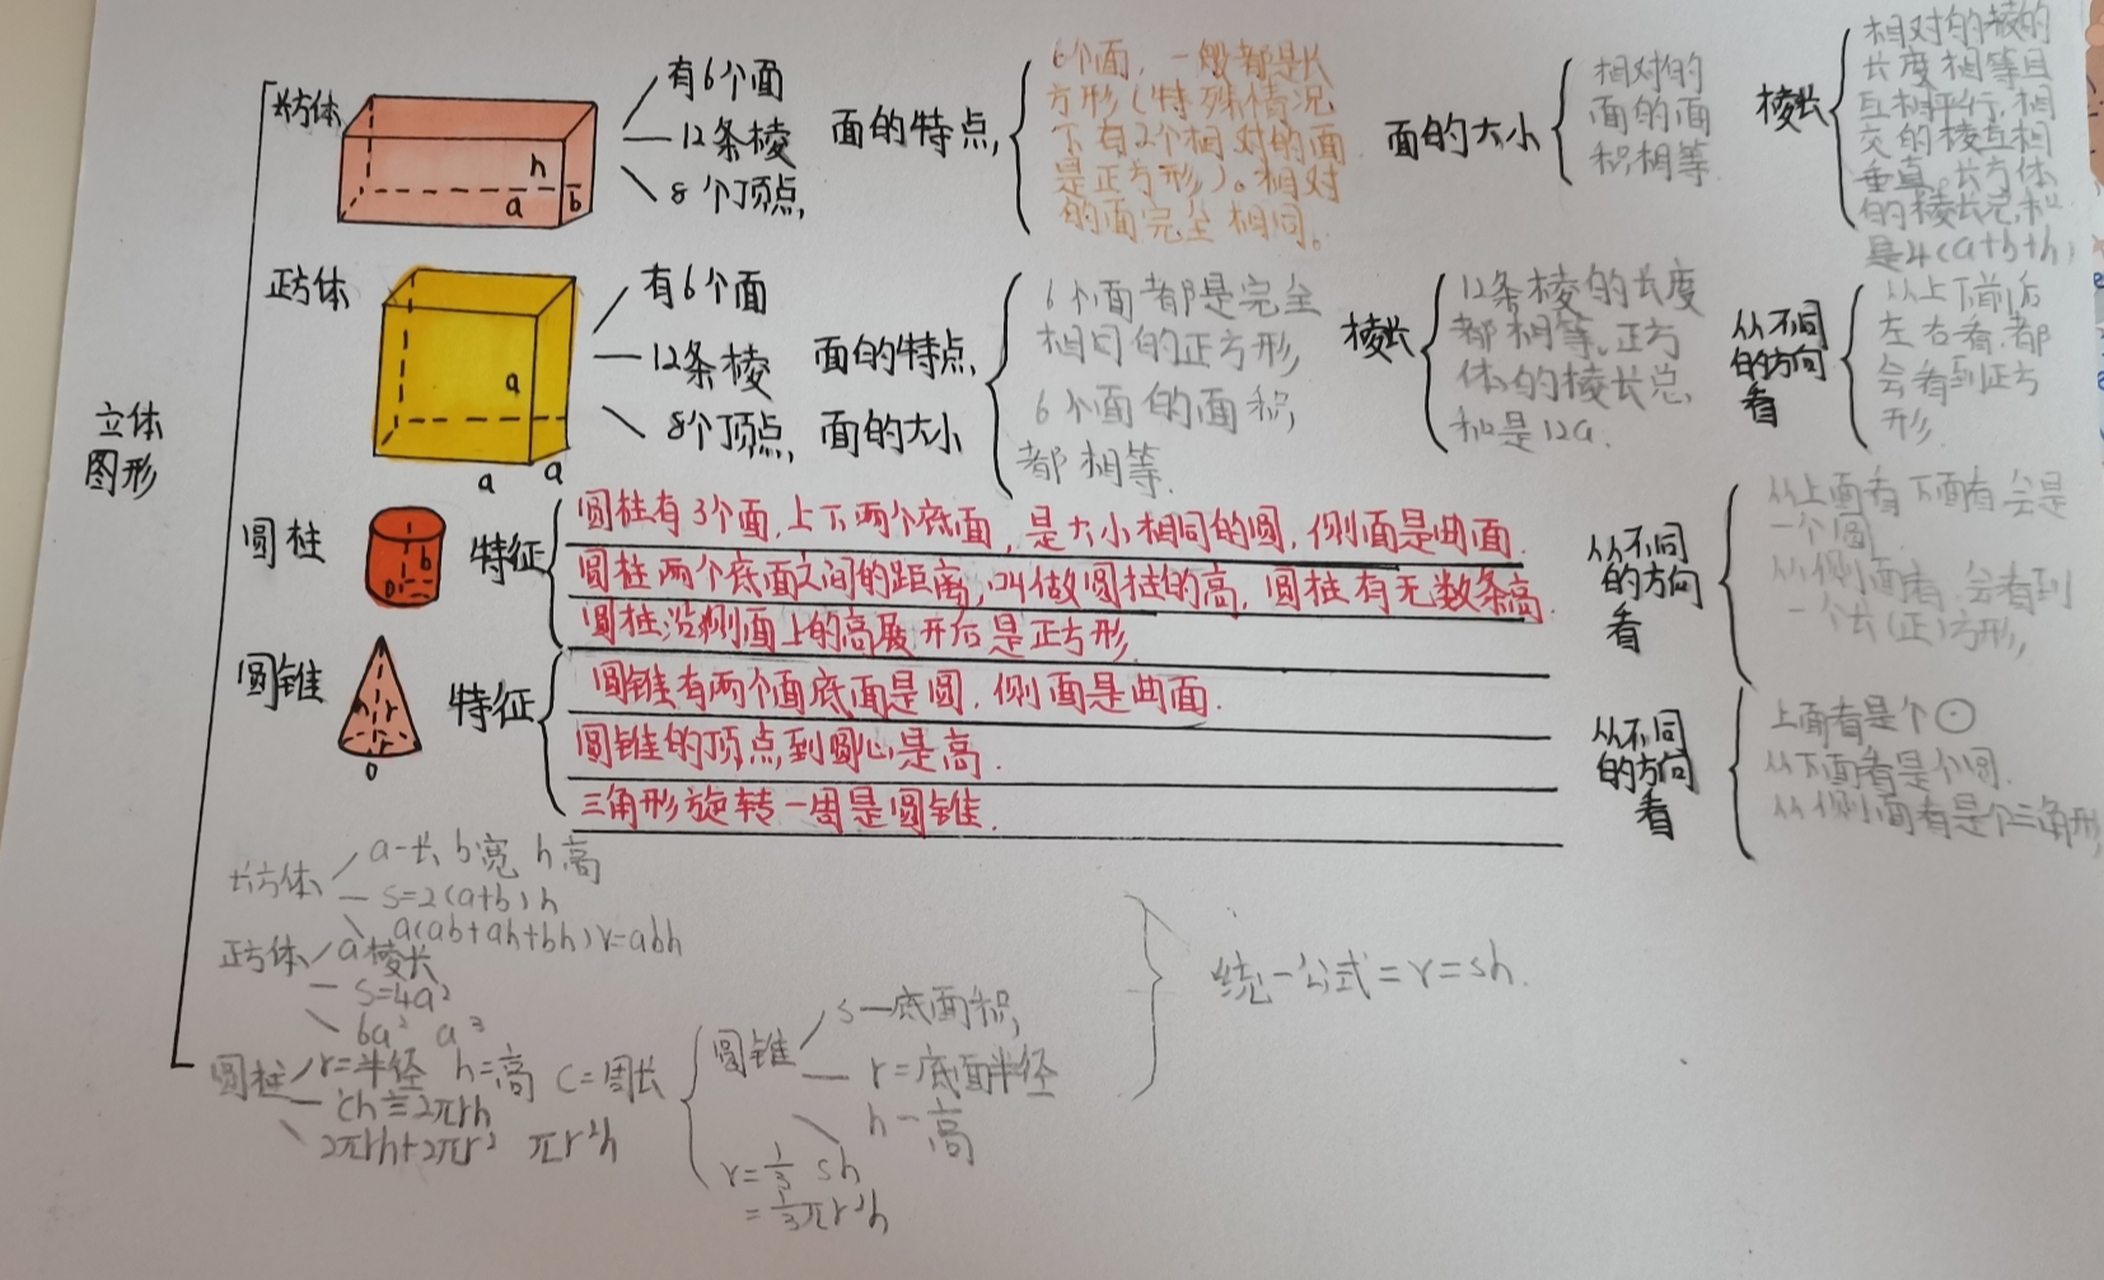 立体
图形
长方体
h
a
b
有6个面
12条棱
8个顶点
面的特点
6个面,一般都是长
方形(特殊情况
下有2个相对的面
是正方形)。相对
的面完全相同。
面的大小
相对的
面的面
积相等
棱长
相对的棱的
长度相等且
互相平行,相
交的棱互相
垂直。长方体
的棱长总和
是4(a+b+h)
正方体
a
a
a
有6个面
12条棱
8个顶点
面的特点
面的大小
6个面都是完全
相同的正方形,
6个面的面积
都相等.
棱长
12条棱的长度
都相等。正方
体的棱长总
和是12a.
从不同
的方向
看
从上下前后
左右看.都
会看到正方
形.
圆柱
b
0
特征
圆柱有3个面.上下两个底面,是大小相同的圆.侧面是曲面.
圆柱两个底面之间的距离,叫做圆柱的高.圆柱有无数条高.
圆柱沿侧面上的高展开后是正方形.
从不同
的方向
看
从上面看下面看会是
一个圆.
从侧面看,会看到
一个长(正)方形,
圆锥
h
r
r
0
特征
圆锥有两个面底面是圆.侧面是曲面.
圆锥的顶点到圆心是高.
三角形旋转一周是圆锥.
从不同
的方向
看
上面看是个⊙
从下面看是个圆.
从侧面看是个三角形,
长方体
a-长 b宽 h高
s=2(a+b)h
a(ab+ah+bh)v=abh
正方体
a棱长
s=4a²
6a² a³
圆柱
r=半径 h=高 c=周长
ch=2πrh
2πrh+2πr² πr²h
圆锥
s-底面积
r=底面半径
h-高
v=1/3 sh
=1/3πr²h
统一公式=v=sh.